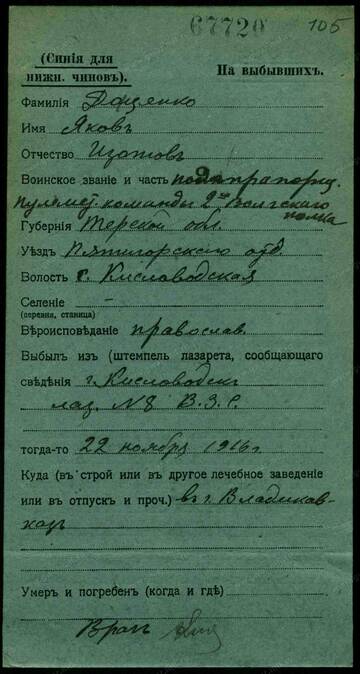 67720 105
(Синія для
нижн. чиновъ).
На выбывшихъ.
Фамилія Доценко
Имя Яковъ
Отчество
Воинское званіе и часть подпрапорщ.
пулемет команды 2го Волгскаго
полка
Губернія Терской обл.
Уѣздъ Пятигорскаго отд.
Волость с. Кисловодская
Селеніе —
(деревня, станица)
Вѣроисповѣданіе православ.
Выбылъ из (штемпель лазарета, сообщающаго
свѣдѣнія г. Кисловодск
лаз. № 8 В.З.С.
тогда-то 22 ноября 1916 г
Куда (въ строй или въ другое лечебное заведеніе
или въ отпускъ и проч.) въ г. Владикав-
казъ
Умеръ и погребенъ (когда и гдѣ)
Врачъ